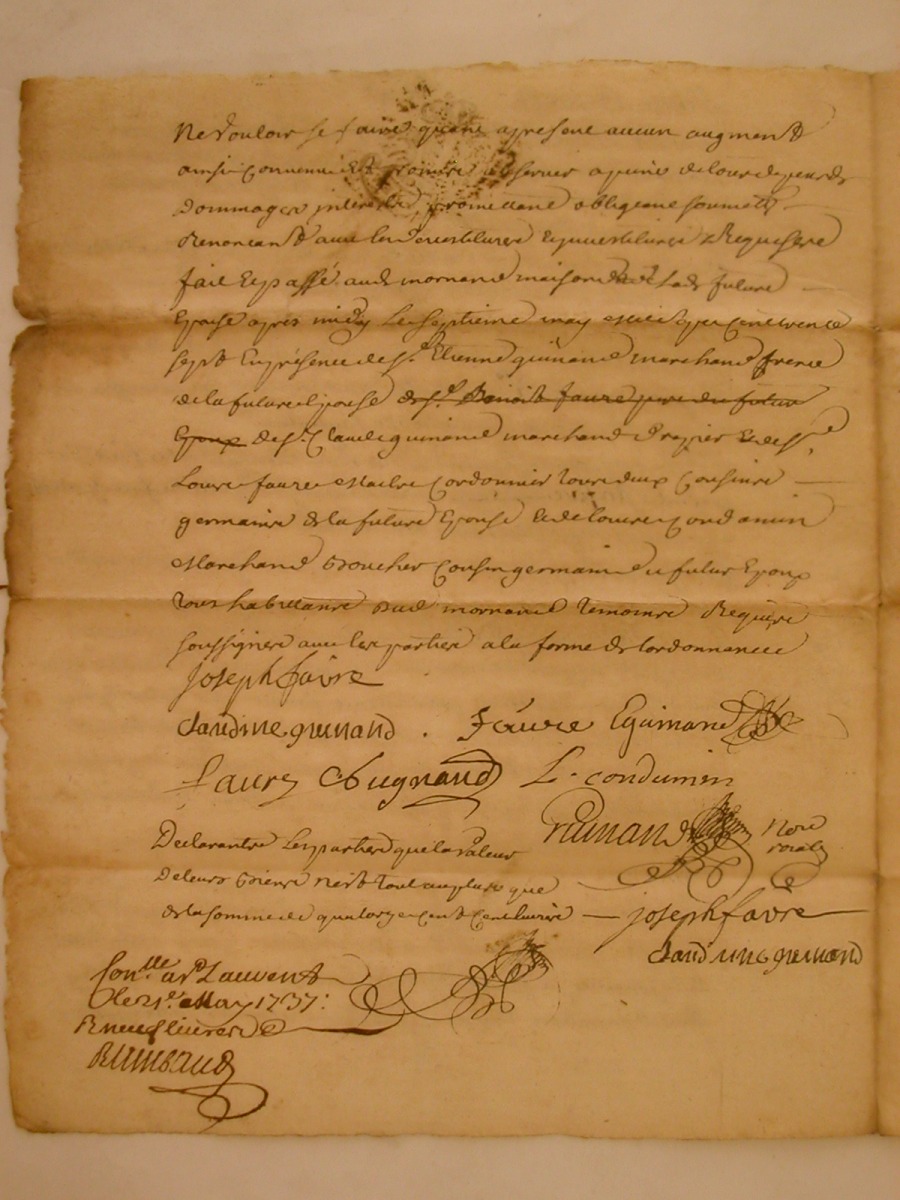 Ne vouloir se faire quant apresent aucun augment
ainsi convenu et promis observer a peine de tous depens
dommages interests, promettant obligeant soumett
Renonceant avec les clauses Requises
fait et passé aud mornand maison de lad future
Epouse apres midy le septieme may mil sept cent trente
sept En présence de sr. Etienne guinand marchand frere
de la future Epouse de sr. Benoit faure pere du futur
Epoux de sr. Claude guinand marchand drapier et de sr.
Louis faure Maitre Cordonnier tous deux Cousins
germains de la future Epouse et de Louis Condamin
Marchand Boucher Cousin germain du futur Epoux
tous habitants aud mornand temoins Requis
soussignes avec les parties a la forme de lordonnance
Joseph favre
claudine guinand . faure E guinand
faure C guynand L. condumin
Guinand Nore
royal
Declarants les parties que la valeur
de leurs Biens n'est tout au plus que
de la somme de quatorze cent Cent livres — joseph favre
claudine guinand
Conlle a st Laurent
le 21e. May 1737:
R neuf livres
Rimbaud